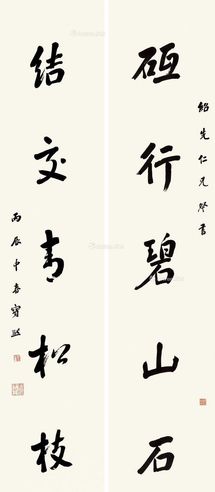 紹先仁兄
砥行碧山石
結交青松枝
丙辰中春寶熙